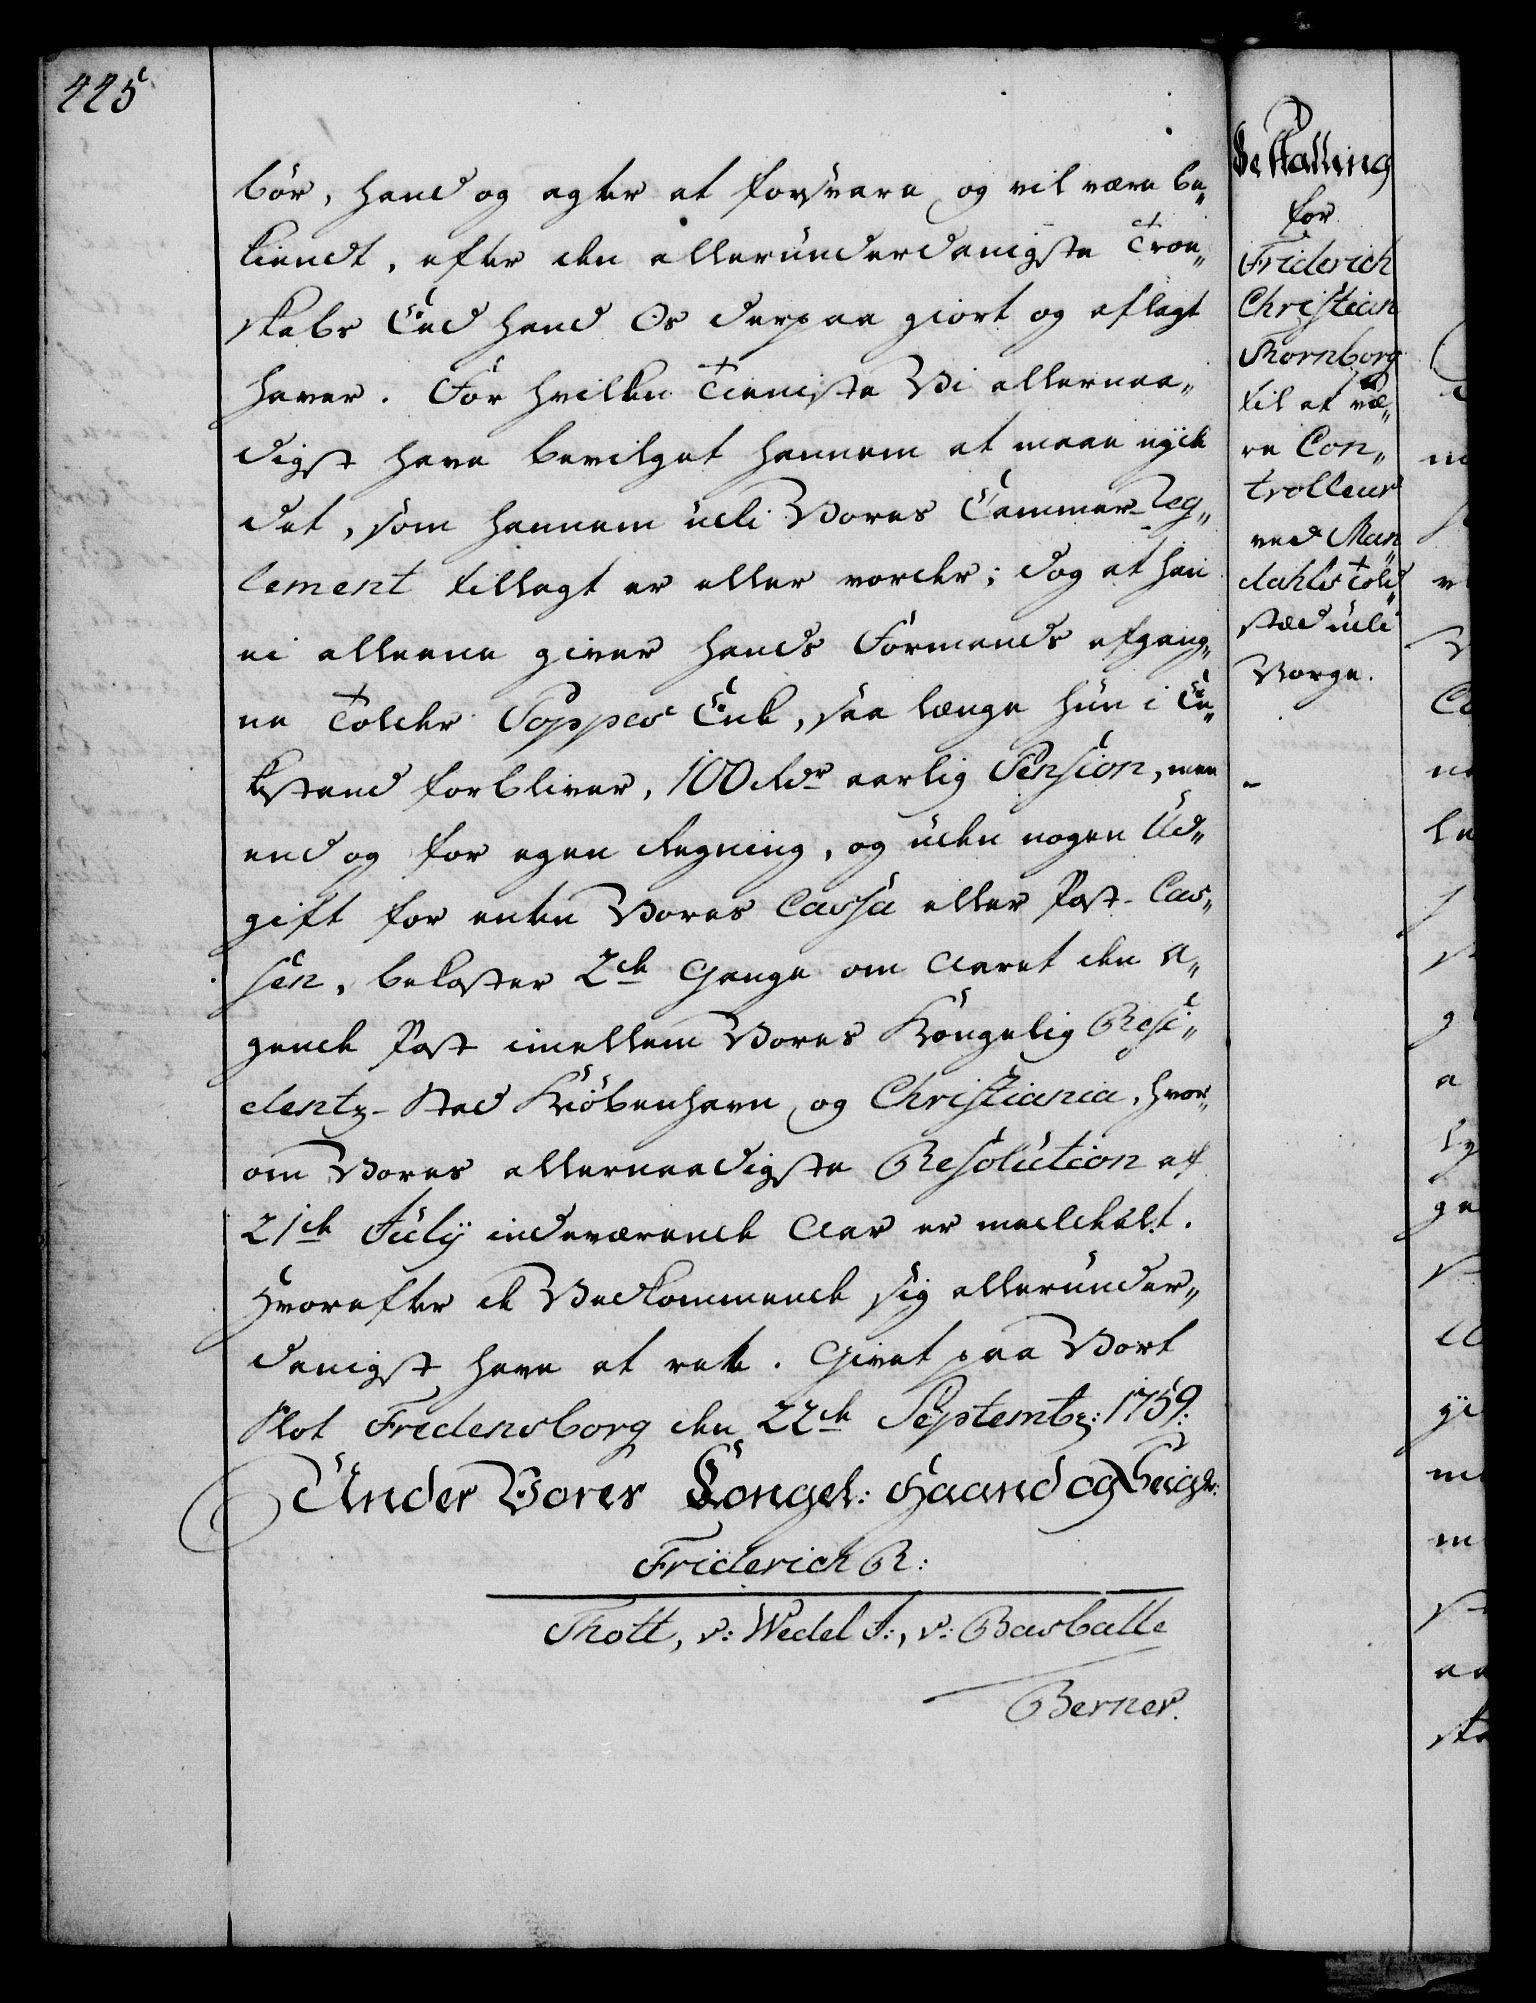 445
bör, hand og agter at forsvare og vil være be„
kiendt, efter den allerunderdanigste Troe„
skabs Eed hand Os derpaa giort og aflagt
haver. For hvilken Tieniste Vi allernaa„
digst have bevilget hannem at maae nyde
det, som hannem udi Vores Cammer-Reg„
lement tillagt er eller vorder; dog at han
ei alleene giver hands Formands afgang„
ne Tolder Poppes Enke, saa længe hun i En„
kestand forbliver, 100 Rdr aarlig Pension, men
end og for egen Regning, og uden nogen Ud„
gift for enten Vores Cassa eller Post-Cas„
sen, bekoster 2de Gange om Aaret den a„
gende Post imellem Vores Kongelig Resi„
dentz-Stad Kiöbenhavn og Christiania, hvor„
om Vores allernaadigste Resolution af
21de July indeværende Aar er meddeelt.
Hvorefter de Vedkommende sig allerunder„
danigst have at rette. Givet paa Vort
Slot Fridensborg den 22de Septembr: 1759:
Under Vores Kongel: Haand og Seigl:
Friderich R:
Thott, v: Wedel F:, v: Basballe
Berner.
Bestalling
for
Friderich
Christian
Thornborg
til at væ„
re Con„
trolleur
ved Man„
dahls Told„
stæd udi
Norge.